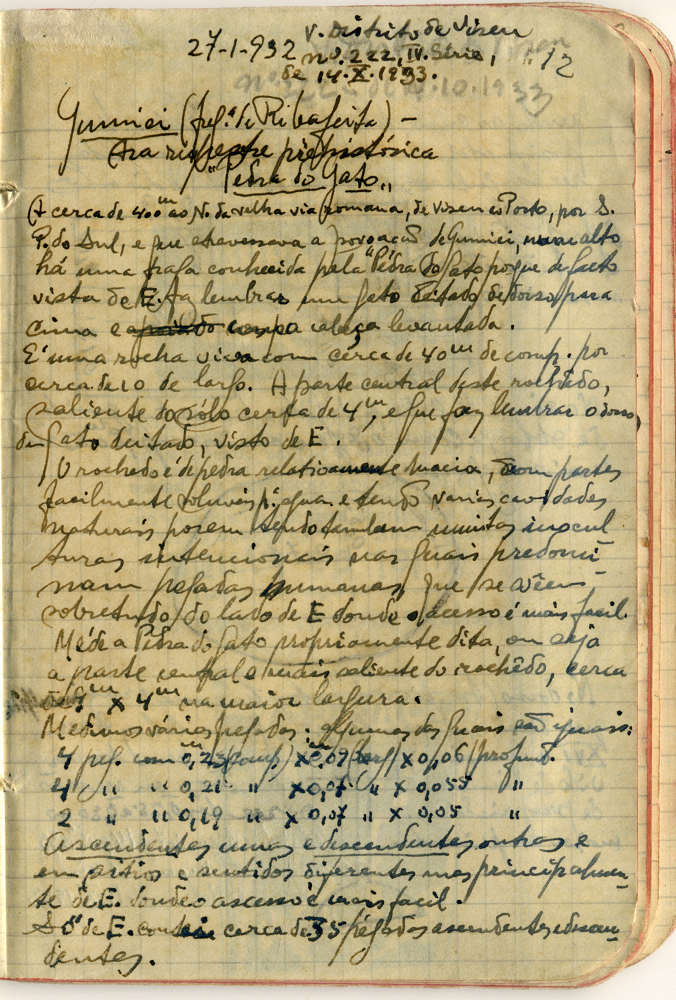 V. Distrito de Viseu
27-1-932 nº. 222, IV. Série, 12
de 14.X.1933.
Gumiei (freg.ª de Ribafeita) –
rupestre prehistórica
"Pedra do Gato"
A cerca de 400m ao N. da velha via romana, de Viseu ao Porto, por S.
P. do Sul, e que atravessava a povoação de Gumiei, num alto
há uma fraga conhecida pela "Pedra do Gato" porque de facto
vista de E. faz lembrar um gato deitado de dorso para
cima e cabeça levantada.
E' uma rocha viva com cêrca de 40m de comp. por
cerca de 10 de largo. A parte central deste rochêdo,
saliente do sólo cerca de 4m, e que faz lembrar o dorso,
de gato deitado, visto de E.
O rochedo é de pedra relativamente macia, com partes
facilmente soluveis p.ª agua e tendo varias cavidades
naturais porem tendo tambem muitas inscul
turas intencionais nas quais predomi-
nam pégadas humanas, que se vêem
sobretudo do lado de E donde o acesso é mais facil.
Méde a Pedra do Gato propriamente dita, ou seja
a parte central e mais saliente do rochêdo, cerca
de m x 4m na maior largura.
Medimos várias pégadas: algumas das quais são iguais:
4 pég. com 0,23 (comp.) x 0,09 (larg.) x 0,06 (profund.
4 " " 0,21 " x 0,07 " x 0,055 "
2 " " 0,19 " x 0,07 " x 0,05 "
Ascendentes umas e descendentes outras e
em sitios e sentidos diferentes mas principalmen-
te de E. donde o acesso é mais facil.
Só de E. contei cerca de 35 pégadas ascendentes e descen-
dentes.